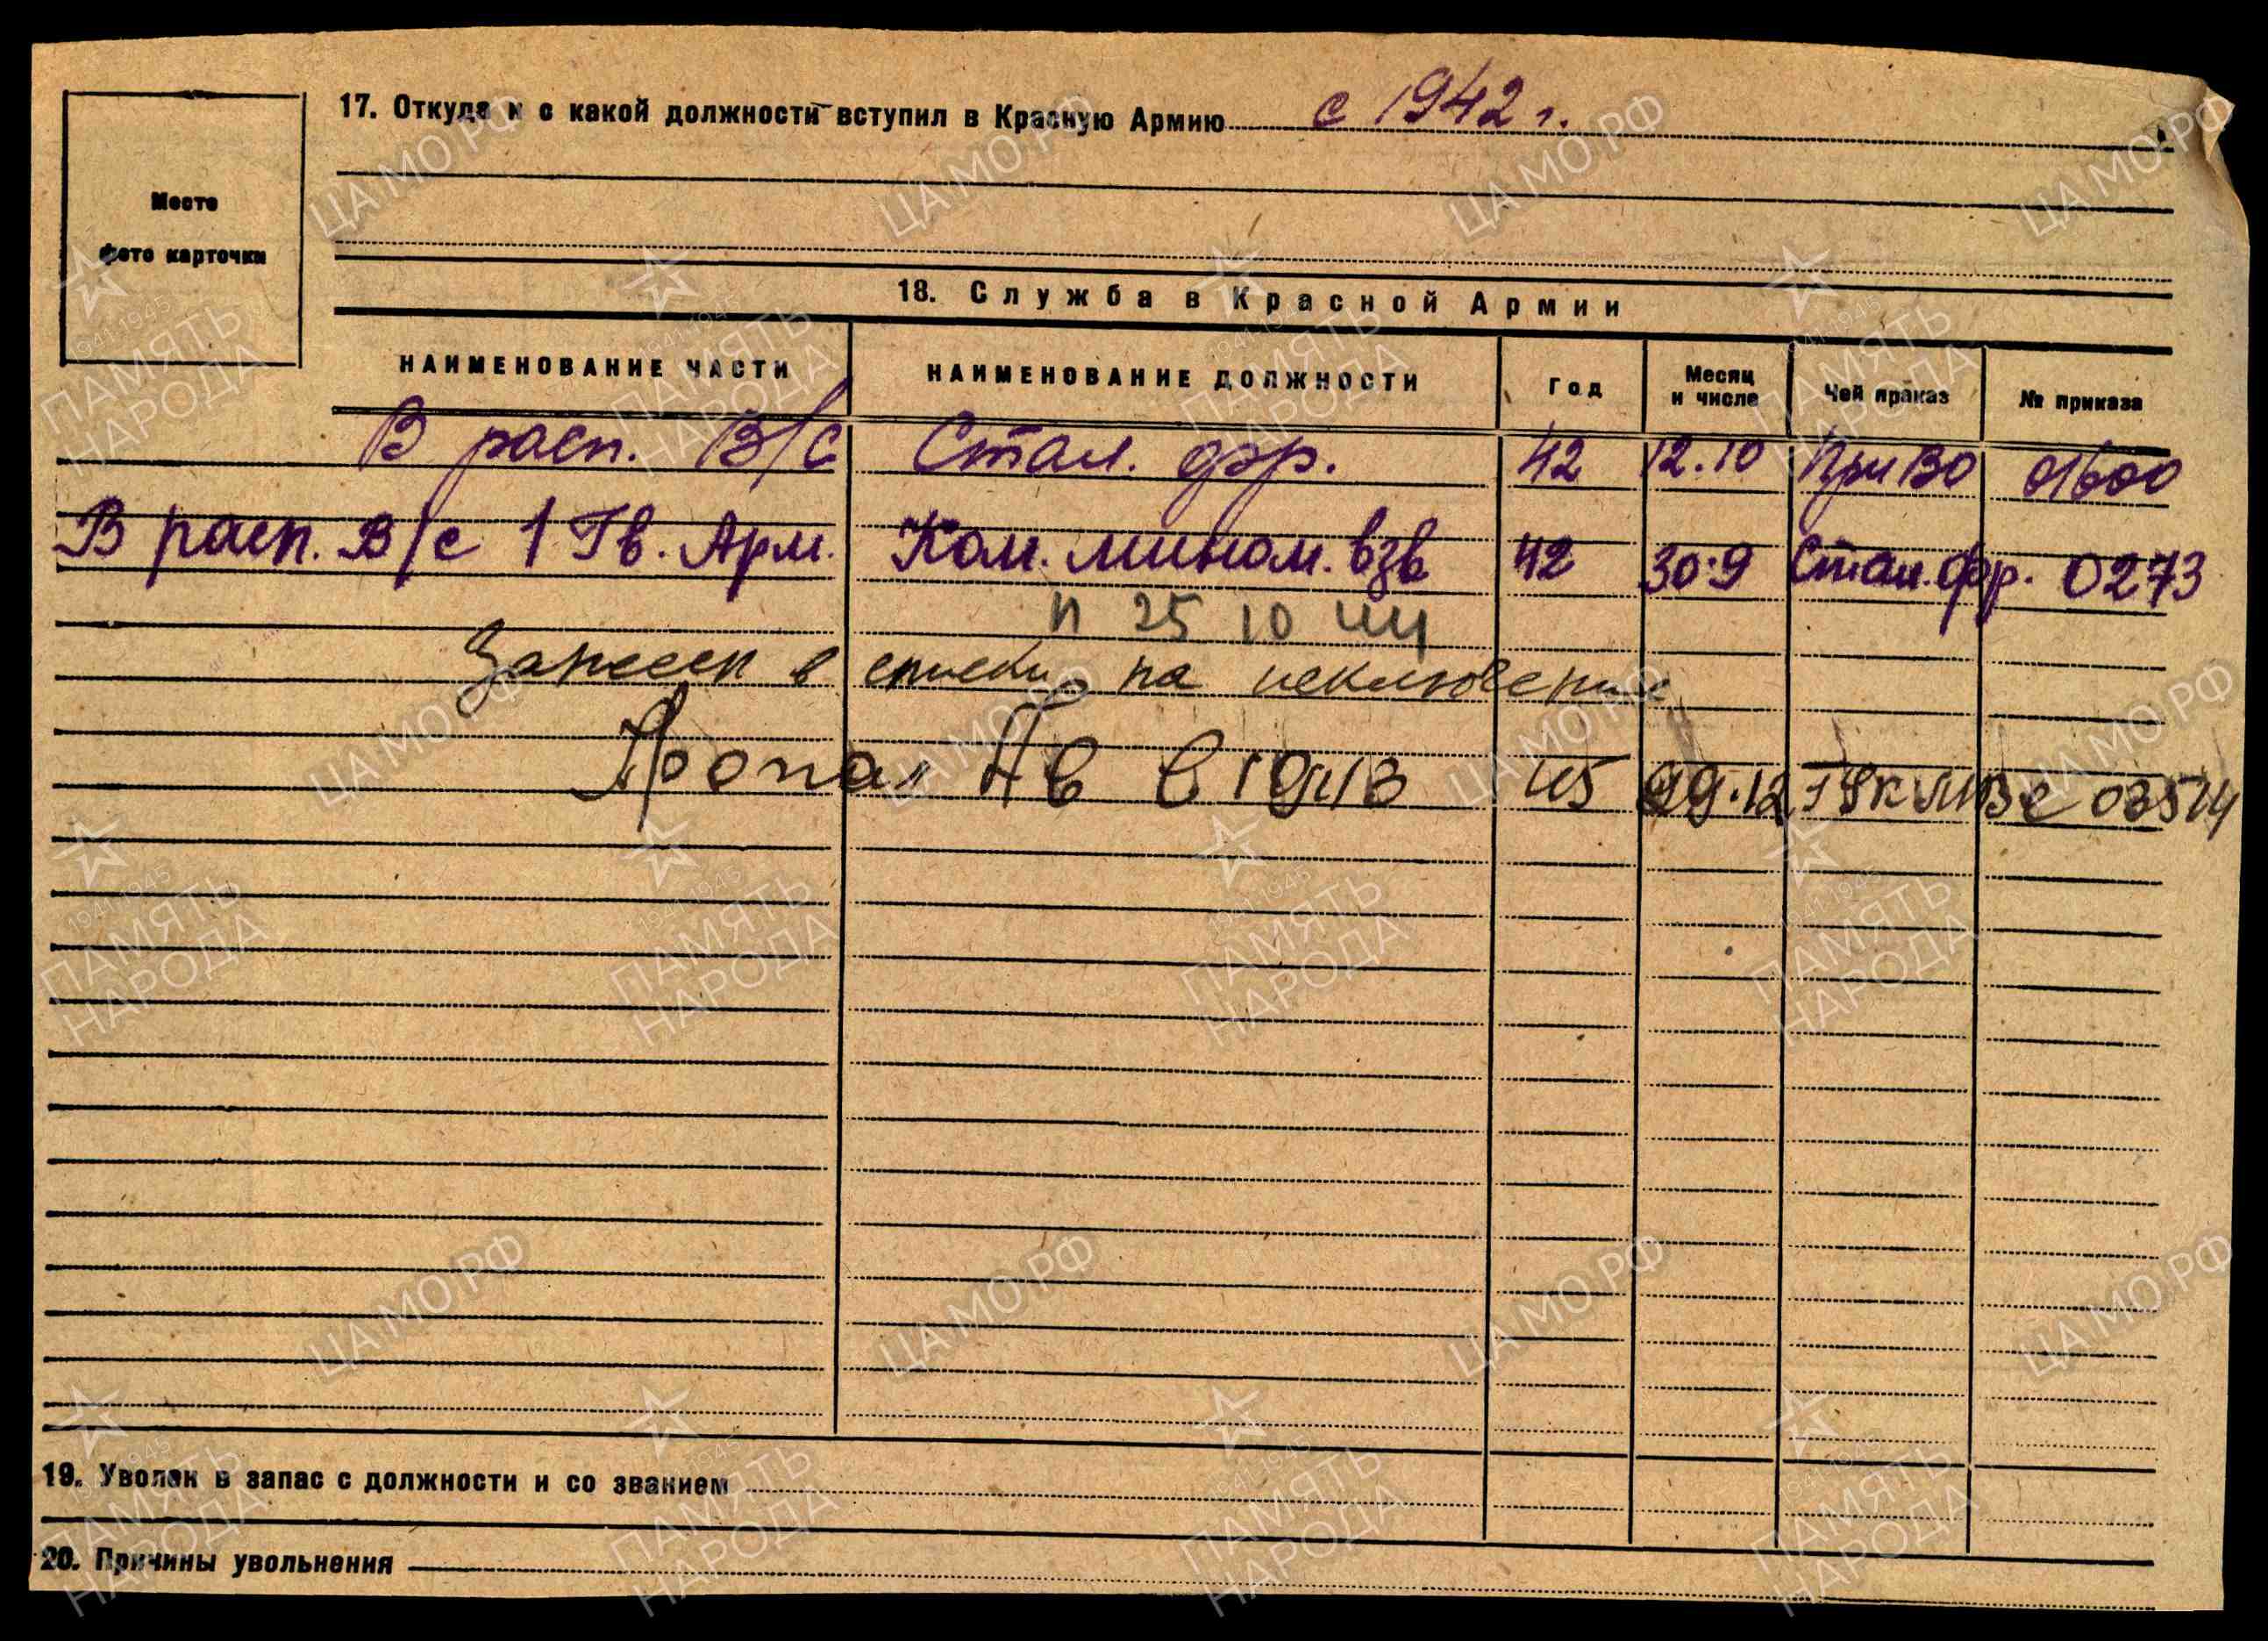 17. Откуда и с какой должности вступил в Красную Армию с 1942 г.
Место
фото карточки
18. Служба в Красной Армии
НАИМЕНОВАНИЕ ЧАСТИ НАИМЕНОВАНИЕ ДОЛЖНОСТИ Год Месяц и число Чей приказ № приказа
В расп. В/С Стал. фр. 42 12.10 ПриВО 01600
В расп. В/с 1 Гв. Арм. Ком. мином. взв 42 30.9 Стал. фр. 0273
п 25 10 44
Занесен в списки на исключение
Пропал 45 12 03514
19. Уволен в запас с должности и со званием
20. Причины увольнения
ЦА МО РФ
1941-1945
ПАМЯТЬ
НАРОДА